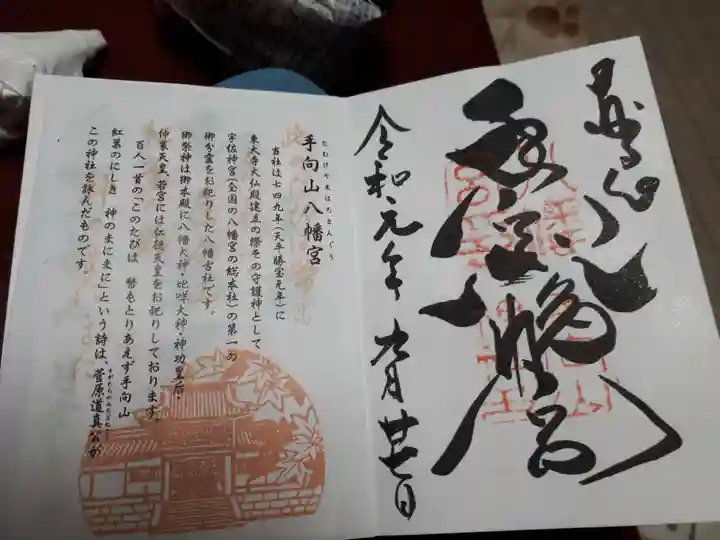 奉拝
手向山八幡宮
令和元年九月廿七日
手向山八幡宮
たむけやまはちまんぐう
当社は七四九年(天平勝宝元年)に
東大寺大仏殿建立の際その守護神として
宇佐神宮(全国の八幡宮の総本社)の第一の
御分霊をお祀りした八幡古社です。
御祭神は御本殿に八幡大神・比咩大神・神功皇后・
仲哀天皇 若宮には仁徳天皇をお祀りしております。
百人一首の「このたびは 幣もとりあえず手向山
紅葉のにしき 神のまにまに」という詩は、菅原道真公が
この神社を詠んだものです。